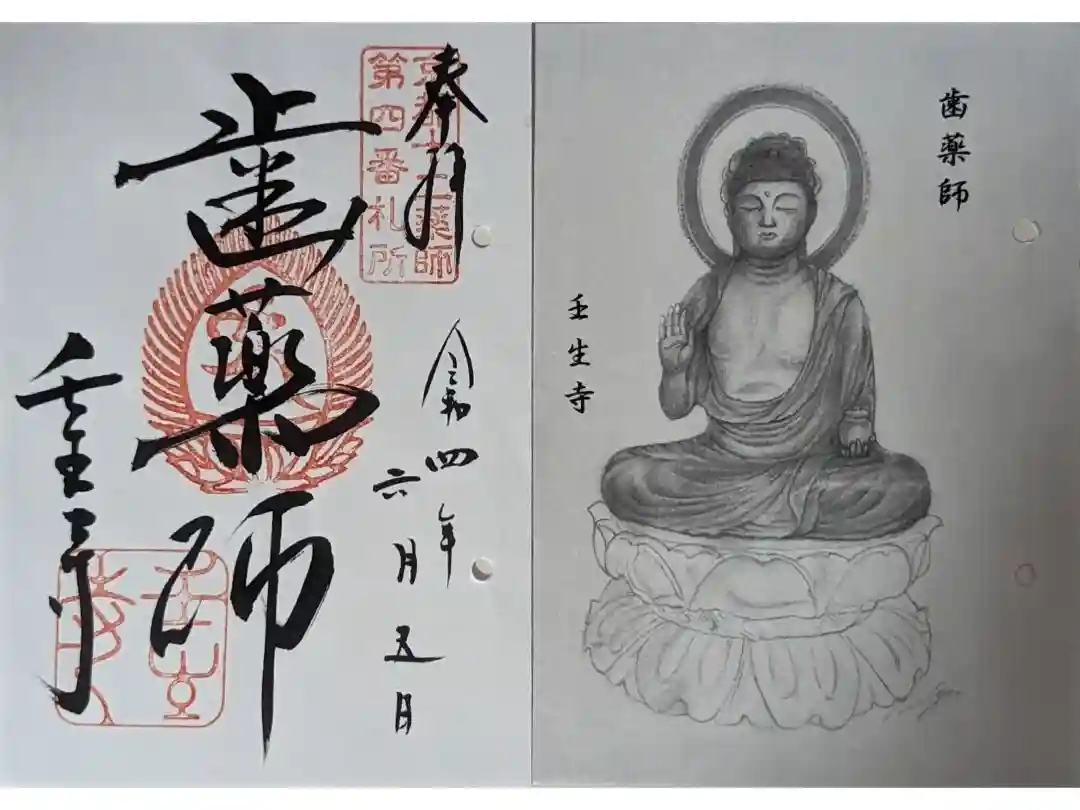 奉拝
京都十二薬師
第四番札所
令和四年
六月五日
歯薬師
壬生寺
歯薬師
壬生寺